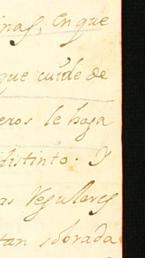 inas, En que
que cuide de
eros le haga
distinto. Y
as Regulares
tan adorada